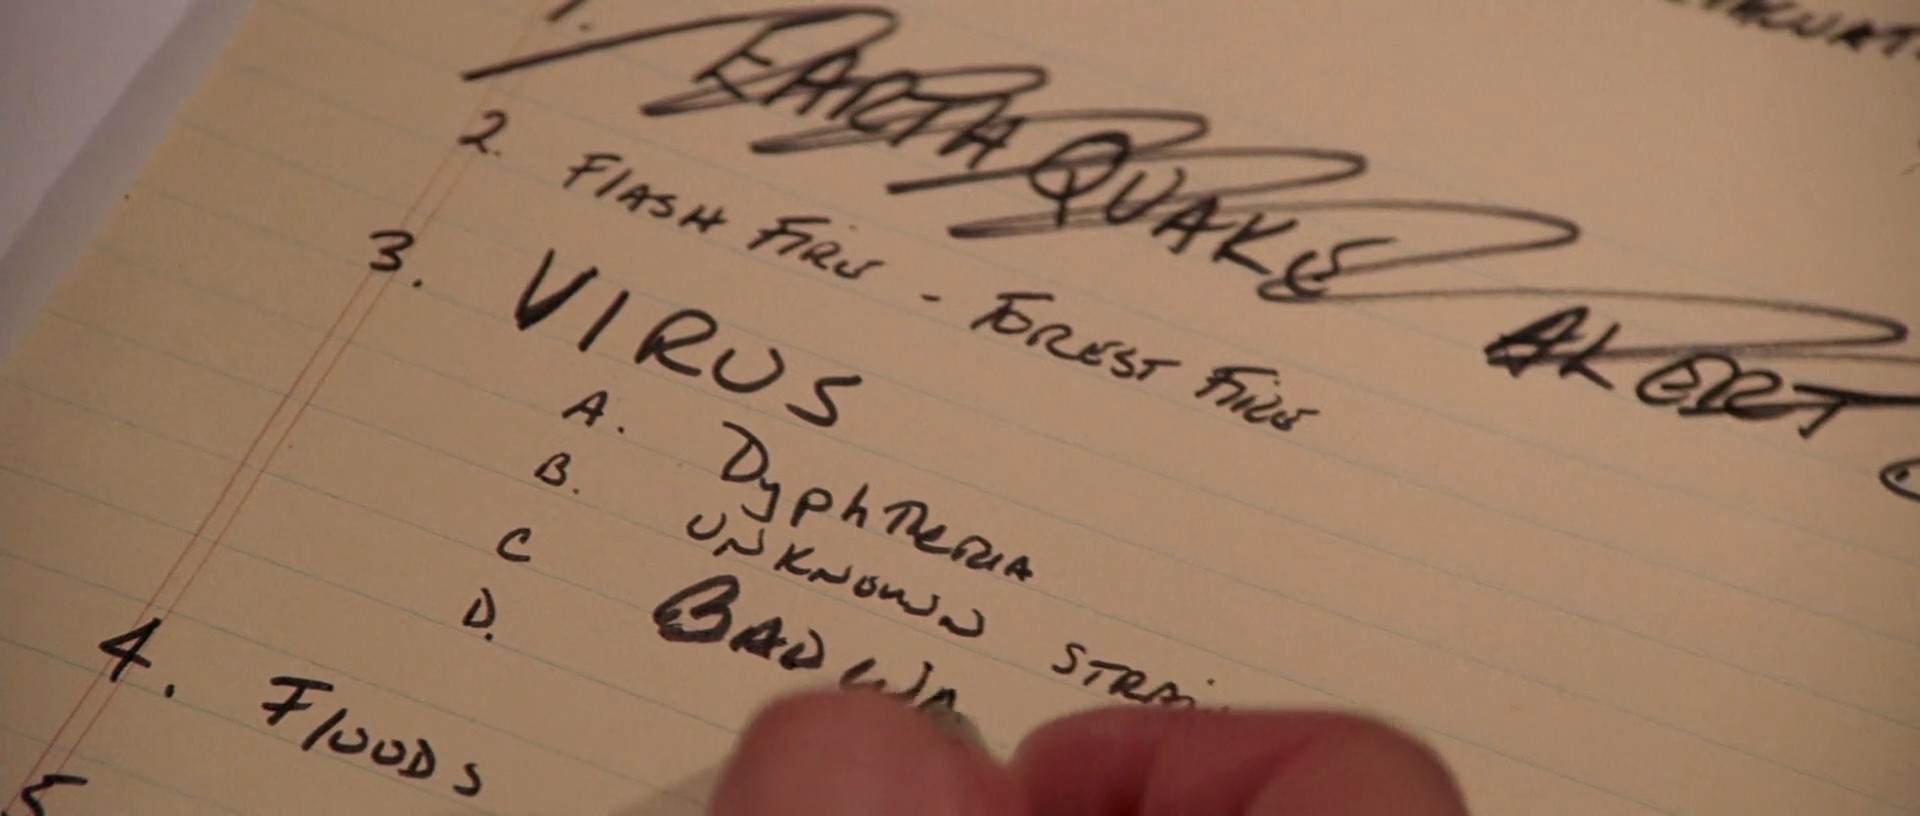 1. EARTHQUAKE ALERT
2. FlASH FIRE - FOREST FIRE
3. VIRUS
A. DyphTheRIA
B. UNKNOWN STRAIN
C BAD
D.
4. FlOODS
5